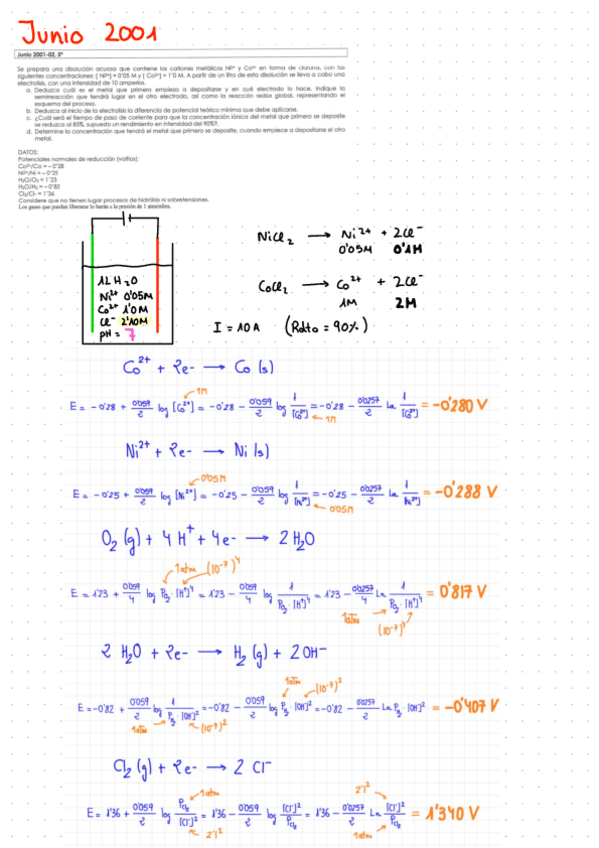 Junio 2001
Junio 2001-02, Sª
Se prepara una disolución acuosa que contiene los cationes metálicos Ni²⁺ y Co²⁺ en forma de cloruros, con las
siguientes concentraciones: [ Ni²⁺] = 0'05 M y [ Co²⁺] = 1'0 M. A partir de un litro de esta disolución se lleva a cabo una
electrolisis, con una intensidad de 10 amperios.
a. Deduzca cuál es el metal que primero empieza a depositarse y en qué electrodo lo hace. Indique la
semirreacción que tendrá lugar en el otro electrodo, así como la reacción redox global, representando el
esquema del proceso.
b. Deduzca al inicio de la electrolisis la diferencia de potencial teórica mínima que debe aplicarse.
c. ¿Cuál será el tiempo de paso de corriente para que la concentración iónica del metal que primero se deposite
se reduzca al 85%, supuesto un rendimiento en intensidad del 90%?.
d. Determine la concentración que tendrá el metal que primero se deposite, cuando empiece a depositarse el otro
metal.
DATOS:
Potenciales normales de reducción (voltios):
Co²⁺/Co = –0'28
Ni²⁺/Ni = –0'25
H₂O/O₂ = 1'23
H₂O/H₂ = –0'82
Cl₂/Cl- = 1'36
Considere que no tienen lugar procesos de hidrólisis ni sobretensiones.
Los gases que puedan liberarse lo harán a la presión de 1 atmósfera.
NiCl₂ → Ni²⁺ + 2Cl⁻
0'05M 0'1M
CoCl₂ → Co²⁺ + 2Cl⁻
1M 2M
1L H₂O
Ni²⁺ 0'05M
Co²⁺ 1'0M
Cl⁻ 2'10M
pH = 7
I = 10A (Rdto = 90%)
Co²⁺ + 2e- → Co (s)
1M
E = -0'28 + 0'059/2 log [Co²⁺] = -0'28 - 0'059/2 log 1/[Co²⁺] = -0'28 - 0'0257/2 Ln 1/[Co²⁺] = -0'280 V
1M
Ni²⁺ + 2e- → Ni (s)
0'05M
E = -0'25 + 0'059/2 log [Ni²⁺] = -0'25 - 0'059/2 log 1/[Ni²⁺] = -0'25 - 0'0257/2 Ln 1/[Ni²⁺] = -0'288 V
0'05M
O₂ (g) + 4H⁺ + 4e- → 2H₂O
1atm (10⁻⁷)⁴
E = 1'23 + 0'059/4 log P_O₂·[H⁺]⁴ = 1'23 - 0'059/4 log 1/P_O₂·[H⁺]⁴ = 1'23 - 0'0257/4 Ln 1/P_O₂·[H⁺]⁴ = 0'817 V
1atm (10⁻⁷)⁴
2 H₂O + 2e- → H₂ (g) + 2OH⁻
1atm (10⁻⁷)²
E = -0'82 + 0'059/2 log 1/P_H₂·[OH⁻]² = -0'82 - 0'059/2 log P_H₂·[OH⁻]² = -0'82 - 0'0257/2 Ln P_H₂·[OH⁻]² = -0'407 V
1atm (10⁻⁷)²
Cl₂ (g) + 2e- → 2 Cl⁻
1atm 2'1²
E = 1'36 + 0'059/2 log P_Cl₂/[Cl⁻]² = 1'36 - 0'059/2 log [Cl⁻]²/P_Cl₂ = 1'36 - 0'0257/2 Ln [Cl⁻]²/P_Cl₂ = 1'340 V
2'1² 1atm